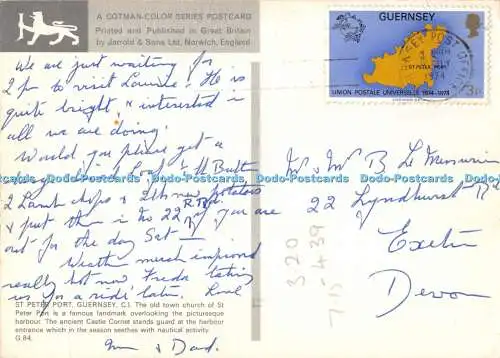 A COTMAN-COLOR SERIES POSTCARD
Printed and Published in Great Britain
by Jarrold & Sons Ltd, Norwich, England
GUERNSEY
ST PETER PORT
UNION POSTALE UNIVERSELLE 1874-1974
1974
We are just waiting for
2 pm to visit Laurie. He is
quite bright, & interested in
all we are doing.
Would you please get a
Loaf, Butter
2 Lamb chops & 2 lbs new potatoes
& put them in No 22 R. Rd. if you are
out for the day Sat —
Weather much improved
really hot now Freda taking
us for a ride later. Love
Mum & Dad.
Mr & Mrs B. Le Messurier
22 Lyndhurst Rd
Exeter
Devon
320
715-439
ST PETER PORT, GUERNSEY, C.I. The old town church of St
Peter Port is a famous landmark overlooking the picturesque
harbour. The ancient Castle Cornet stands guard at the harbour
entrance which in the season seethes with nautical activity.
G.84.
www.Dodo-Postcards.com